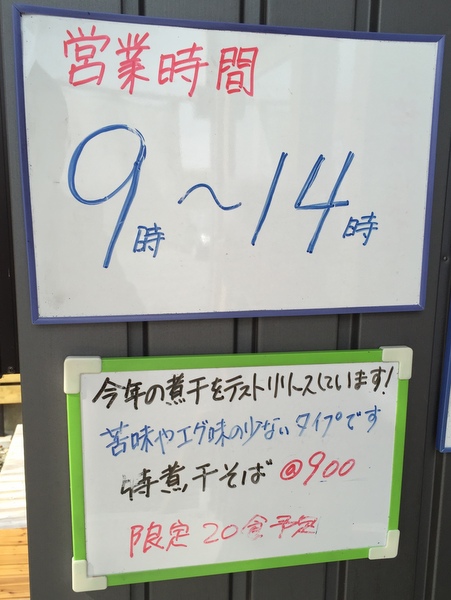 営業時間
9時~14時
今年の煮干をテストリリースしています!
苦味やエグ味の少ないタイプです
特煮干そば @900
限定20食予定